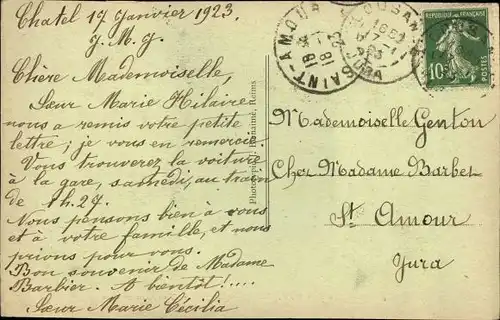 Chatel 17 Janvier 1923.
J. M. J.
Chère Mademoiselle,
Sœur Marie Hilaire
nous a remis votre petite
lettre; je vous en remercie.
Vous trouverez la voiture
à la gare, samedi, au train
de 1h.27.
Nous pensons bien à vous
et à votre famille, et nous
prions pour vous.
Bon souvenir de Madame
Barbier. A bientôt!....
Sœur Marie Cécilia
Reims
Mademoiselle Genton
Chez Madame Barbet
St Amour
Jura
SAINT-AMOUR
JURA
18 -1
23
RÉPUBLIQUE FRANÇAISE
10c
POSTES